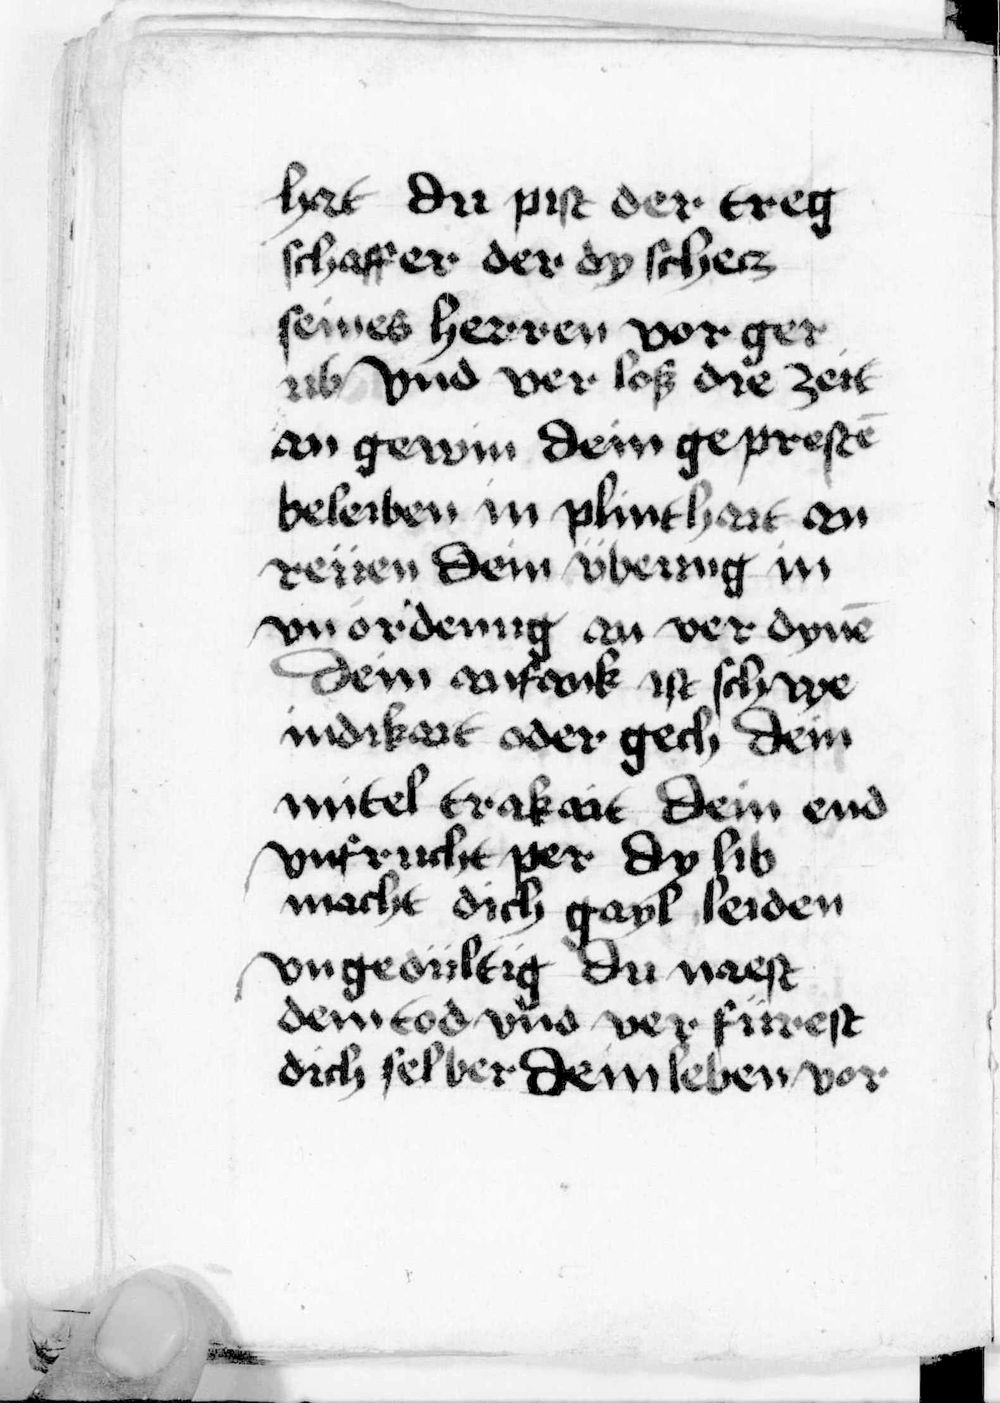 hat du pist der treg
schaffer der dy schecz
seines herren vor ger
ub vnd ver loß die zeit
an gewin dein geprestē
beleiben in plinthait an
reüen dein übeung in
vnordenung an ver dynē
dein anfank ist schwe
indikait oder gech dein
mitel trakait dein end
vnfrucht per dy lib
macht dich gayl leiden
vngedültig du naest
dem tod vnd ver fürest
dich selber dein leben vor